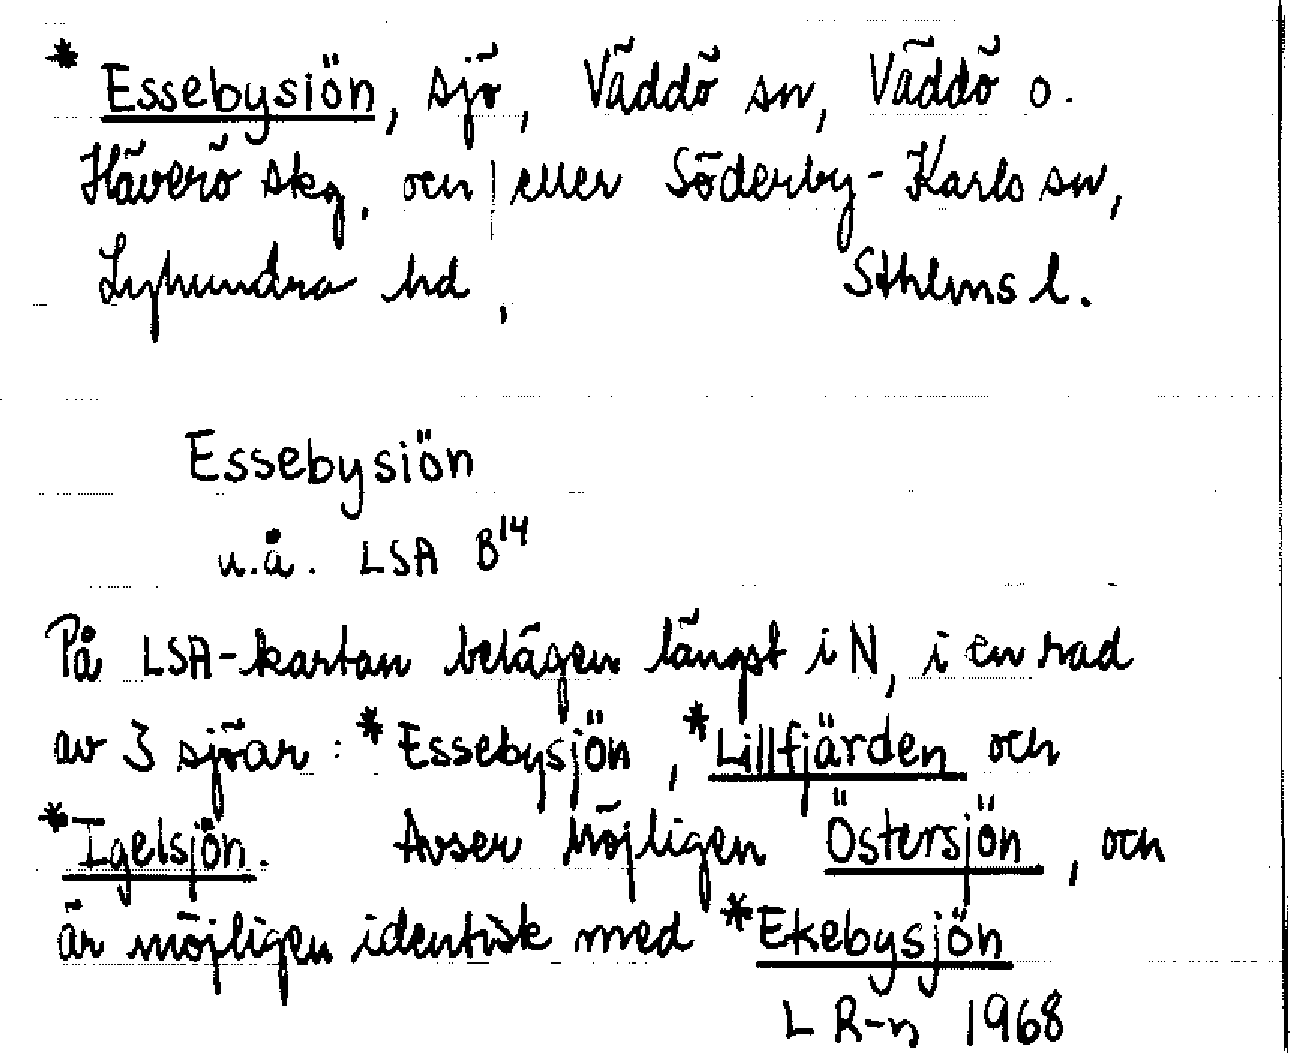 * Essebysiön, sjö, Väddö sn, Väddö o.
Häverö skg, och/eller Söderby-Karls sn,
Lyhundra hd, Sthlms l.
Essebysiön
u.å. LSA B¹⁴
På LSA-kartan belägen längst i N, i en rad
av 3 sjöar: *Essebysjön, *Lillfjärden och
*Igelsjön. Avser möjligen Östersjön, och
är möjligen identisk med *Ekebysjön
L R-n 1968